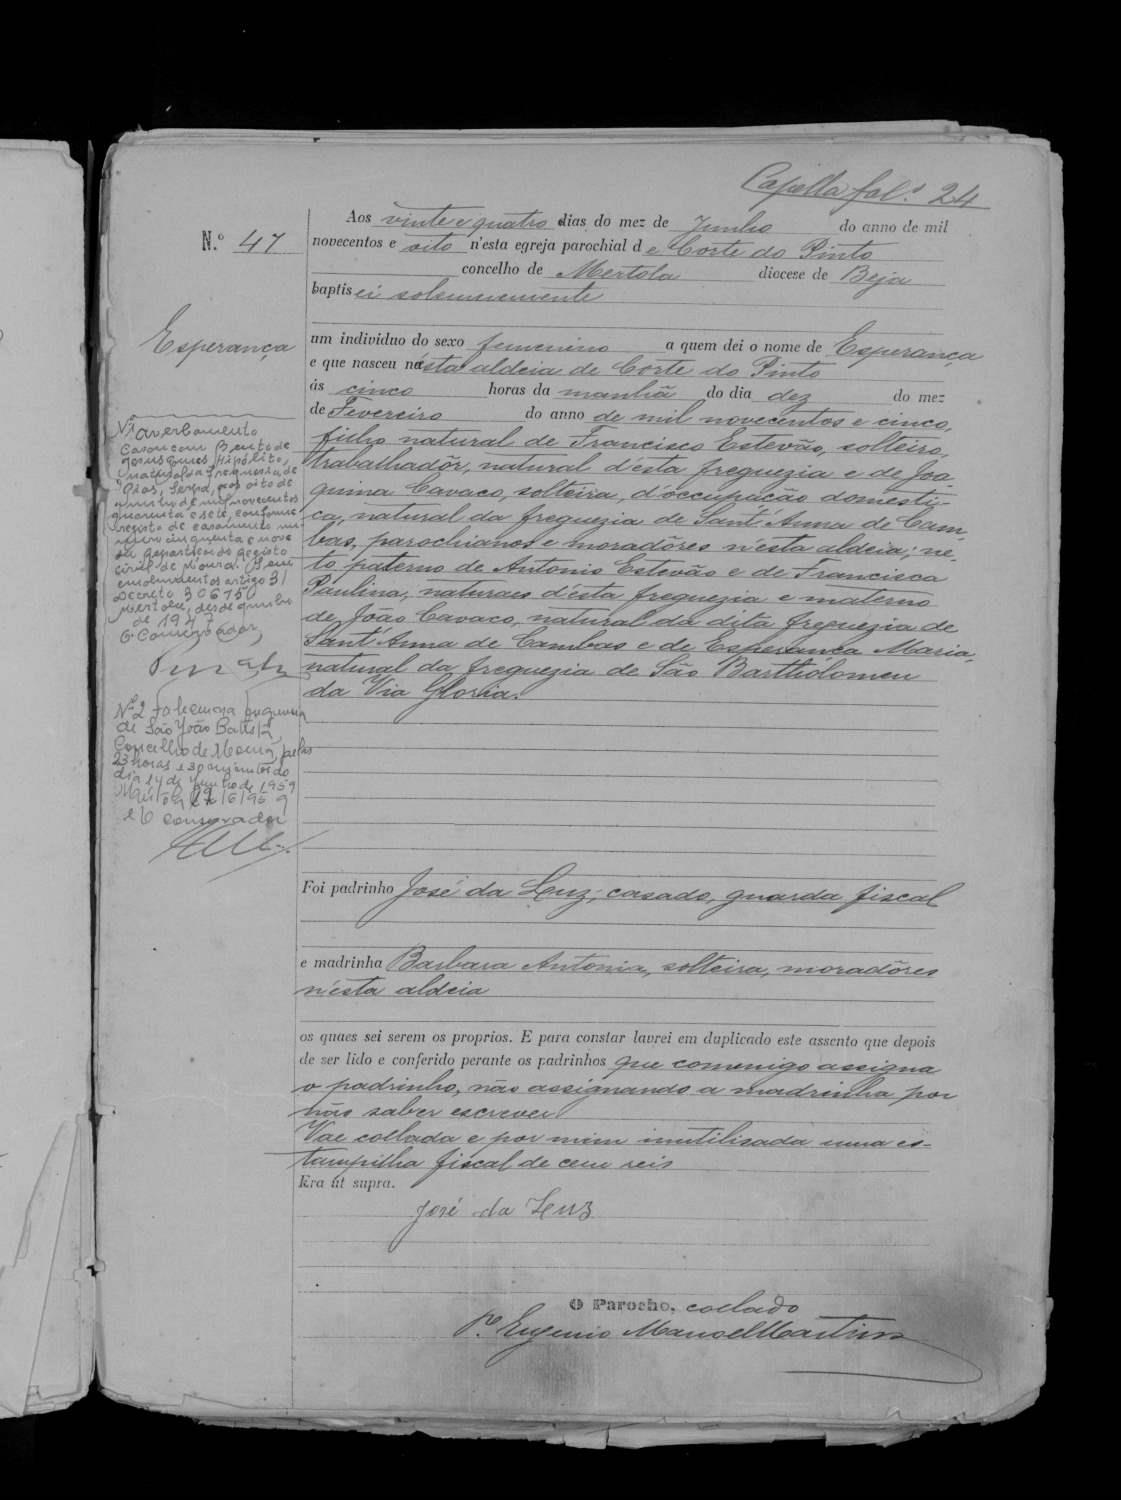 Capella fol. 24
N.º 47
Aos vinte e quatro dias do mez de Junho do anno de mil
novecentos e oito n'esta egreja parochial de Corte do Pinto
concelho de Mertola diocese de Beja
baptisei solemnemente
Esperança
um individuo do sexo femenino a quem dei o nome de Esperança
e que nasceu nésta aldeia de Corte do Pinto
ás cinco horas da manhã do dia dez do mez
de Fevereiro do anno de mil novecentos e cinco,
filho natural de Francisco Estevão, solteiro,
trabalhadôr, natural d'ésta freguezia e de Joa-
quina Cavaco, solteira, d'occupação domesti-
ca, natural da freguezia de Sant'Anna de Cam-
bas, parochianos e moradôres n'ésta aldeia; ne-
to paterno de Antonio Estevão e de Francisca
Paulina, naturaes d'ésta freguezia e materno
de João Cavaco, natural da dita freguezia de
Sant'Anna de Cambas e de Esperança Maria,
natural da freguezia de São Bartholomeu
da Via Gloria.
Nº 1 averbamento
Casou com Bento de
Jesus Hipólito,
natural da freguesia de
Pias, Serpa, aos oito de
junho de mil novecentos
quarenta e sete, conforme
registo de casamento nu-
mero cinquenta e nove
da Repartição do Registo
Civil de Moura. Sem
emolumentos artigo 31
Decreto 30675
Mertola, de junho
de 1947
O Conservador,
Nº 2 Faleceu na freguesia
de São João Batista,
Concelho de Moura, pelas
23 horas e 30 minutos do
dia 14 de Junho de 1959
Mértola, 17/6/959
O Conservador
Foi padrinho José da Luz, casado, guarda fiscal
e madrinha Barbara Antonia, solteira, moradôres
n'ésta aldeia
os quaes sei serem os proprios. E para constar lavrei em duplicado este assento que depois
de ser lido e conferido perante os padrinhos que comenigo assigna
o padrinho, não assignando a madrinha por
não saber escrever
Vae collada e por mim inutilisada uma es-
tampilha fiscal de cem reis
Era út supra.
José da Luz
O Parocho, collado
P.e Eugenio Manoel Martins